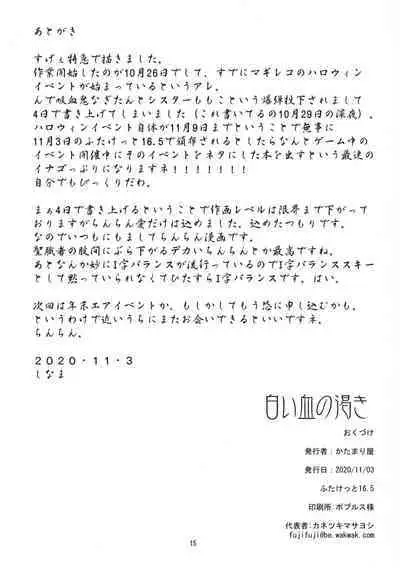 あとがき
すげぇ特急で描きました。
作業開始したのが10月26日でして、すでにマギレコのハロウィン
イベントが始まっているというアレ。
んで吸血鬼なぎたんとシスターももこという爆弾投下されまして
4日で書き上げてしまいました（これ書いてるの10月29日の深夜）。
ハロウィンイベント自体が11月9日までということで無事に
11月3日のふたけっと16.5で頒布されるとしたらなんとゲーム中の
イベント開催中にそのイベントをネタにした本を出すという最速の
イナゴっぷりになりますネ！！！！！！！
自分でもびっくりだわ。
まぁ4日で書き上げるということで作画レベルは限界まで下がって
おりますがちんちん愛だけは込めました。込めたつもりです。
なのでいつもにもましてちんちん漫画です。
聖職者の股間にぶら下がるデカいちんちんとか最高ですね。
あとなんか妙にI字バランスが流行っているのでI字バランススキー
として黙っていられなくてひたすらI字バランスです。はい。
次回は年末エアイベントか、もしかしてもう悠に申し込むかも。
というわけで近いうちにまたお会いできるといいですネ。
ちんちん。
２０２０・１１・３
しなま
白い血の渇き
おくづけ
発行者：かたまり屋
発行日：2020/11/03
ふたけっと16.5
印刷所：ポプルス様
代表者：カネツキマサヨシ
fujifuji@be.wakwak.com
15